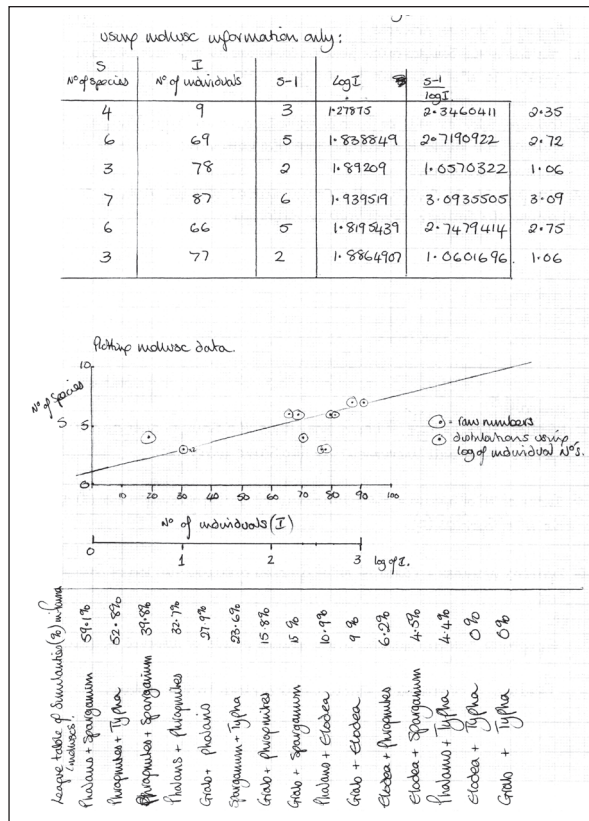 using mollusc information only:
S I
Nº of species Nº of individuals S-1 Log I S-1
log I
4 9 3 1.27875 2.3460411 2.35
6 69 5 1.838849 2.7190922 2.72
3 78 2 1.89209 1.0570322 1.06
7 87 6 1.939519 3.0935505 3.09
6 66 5 1.8195439 2.7479414 2.75
3 77 2 1.8864907 1.0601696 1.06
Plotting mollusc data.
10
Nº of Species
S 5
0
10 20 30 40 50 60 70 80 90 100
Nº of individuals (I)
0 1 2 3 log of I.
raw numbers
distributions using
log of individual Nºs.
League table of Similarities (%) in fauna
(molluscs)
Phalaris + Sparganium 59.1%
Phragmites + Typha 52.8%
Phragmites + Sparganium 39.8%
Phalaris + Phragmites 32.7%
Grab + Phalaris 27.9%
Sparganium + Typha 23.6%
Grab + Phragmites 15.8%
Grab + Sparganium 15%
Phalaris + Elodea 10.9%
Grab + Elodea 9%
Elodea + Phragmites 6.2%
Elodea + Sparganium 4.5%
Phalaris + Typha 4.4%
Elodea + Typha 0%
Grab + Typha 0%